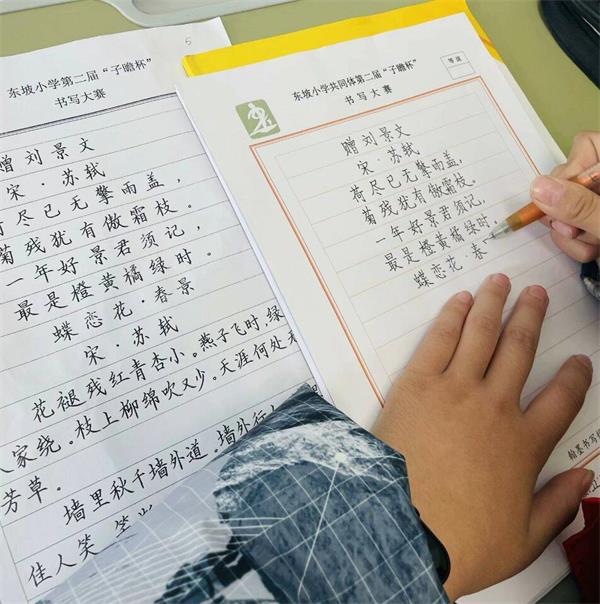 5
东坡小学第二届“子瞻杯”
书写大赛
赠刘景文
宋·苏轼
荷尽已无擎雨盖，
菊残犹有傲霜枝。
一年好景君须记，
最是橙黄橘绿时。
蝶恋花·春景
宋·苏轼
花褪残红青杏小。燕子飞时，绿
人家绕。枝上柳绵吹又少。天涯何处
芳草。
墙里秋千墙外道。墙外行
佳人笑。笑
东坡小学共同体第二届“子瞻杯”
书写大赛
等级
赠刘景文
宋·苏轼
荷尽已无擎雨盖，
菊残犹有傲霜枝。
一年好景君须记，
最是橙黄橘绿时。
蝶恋花·春
翰墨书写